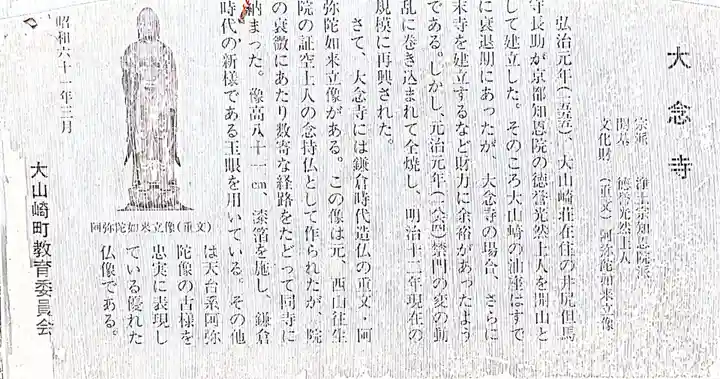 大念寺
宗派 浄土宗知恩院派
開基 徳誉光然上人
文化財 (重文)阿弥陀如来立像
弘治元年(一五五五)、大山崎荘在住の井尻但馬
守長助が京都知恩院の徳誉光然上人を開山と
して建立した。そのころ大山崎の油座はすで
に衰退期にあったが、大念寺の場合、さらに
末寺を建立するなど財力に余裕があったよう
である。しかし、元治元年(一八六四)禁門の変の動
乱に巻き込まれて全焼し、明治十二年現在の
規模に再興された。
さて、大念寺には鎌倉時代造仏の重文・阿
弥陀如来立像がある。この像は元、西山往生
院の証空上人の念持仏として作られたが、院
の衰微にあたり数寄な経路をたどって同寺に
納まった。像高八十一cm、漆箔を施し、鎌倉
時代の新様である玉眼を用いている。その他
は天台系阿弥
陀像の古様を
忠実に表現し
ている優れた
仏像である。
阿弥陀如来立像(重文)
昭和六十一年三月
大山崎町教育委員会